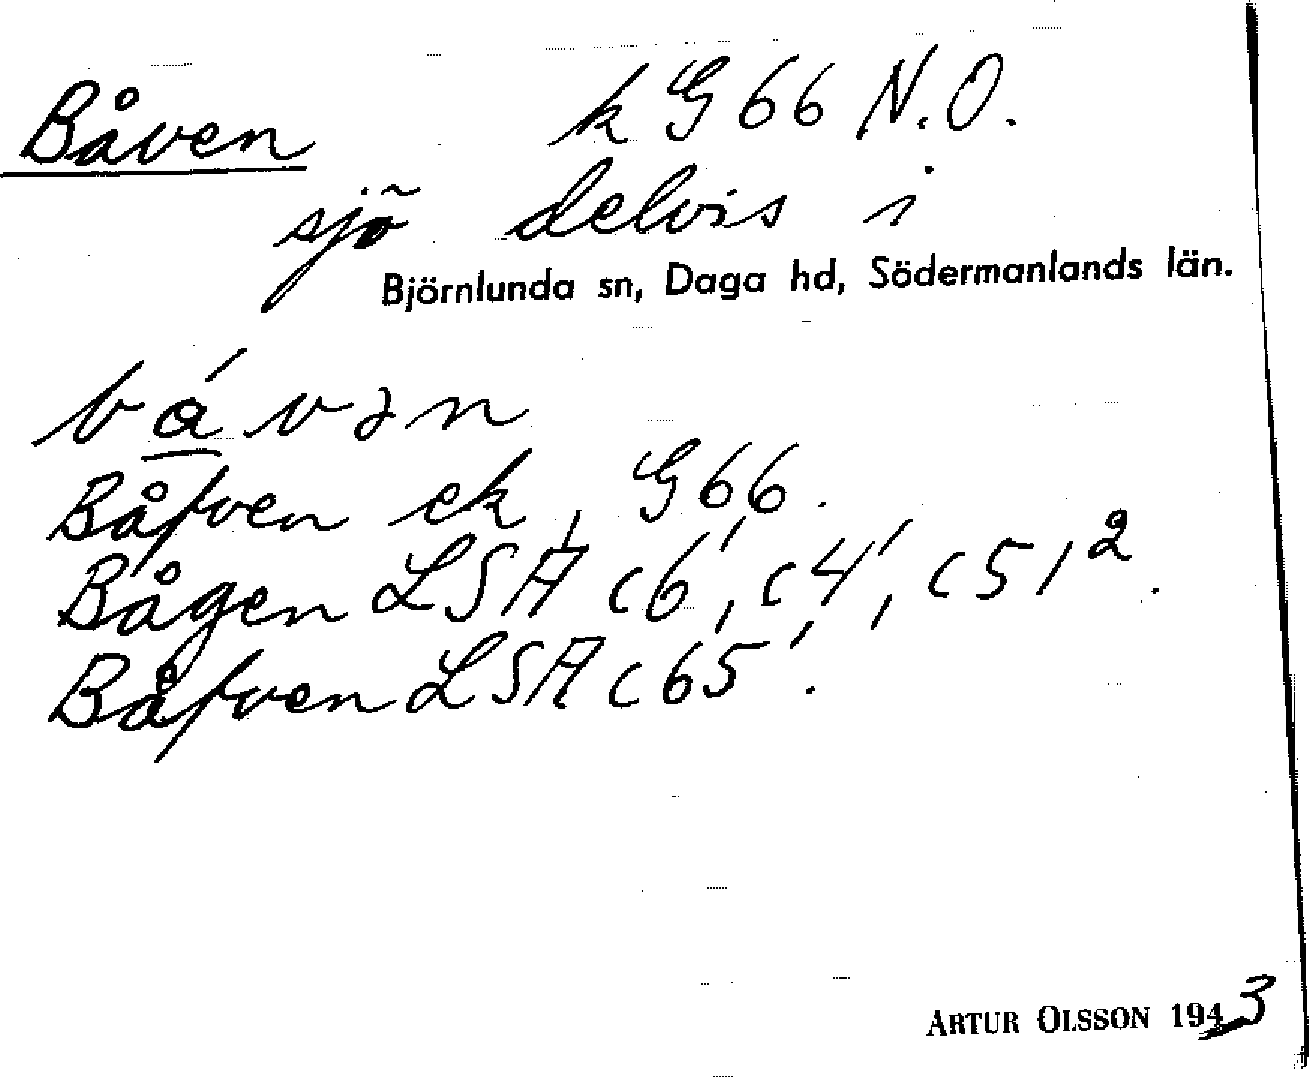 Båven k G66 N.O.
sjö delvis i
Björnlunda sn, Daga hd, Södermanlands län.
bá̱vən
Båfven ek, G66.
Bågen LSA c6', c4', c51².
Båfven LSA c65'.
ARTUR OLSSON 1943